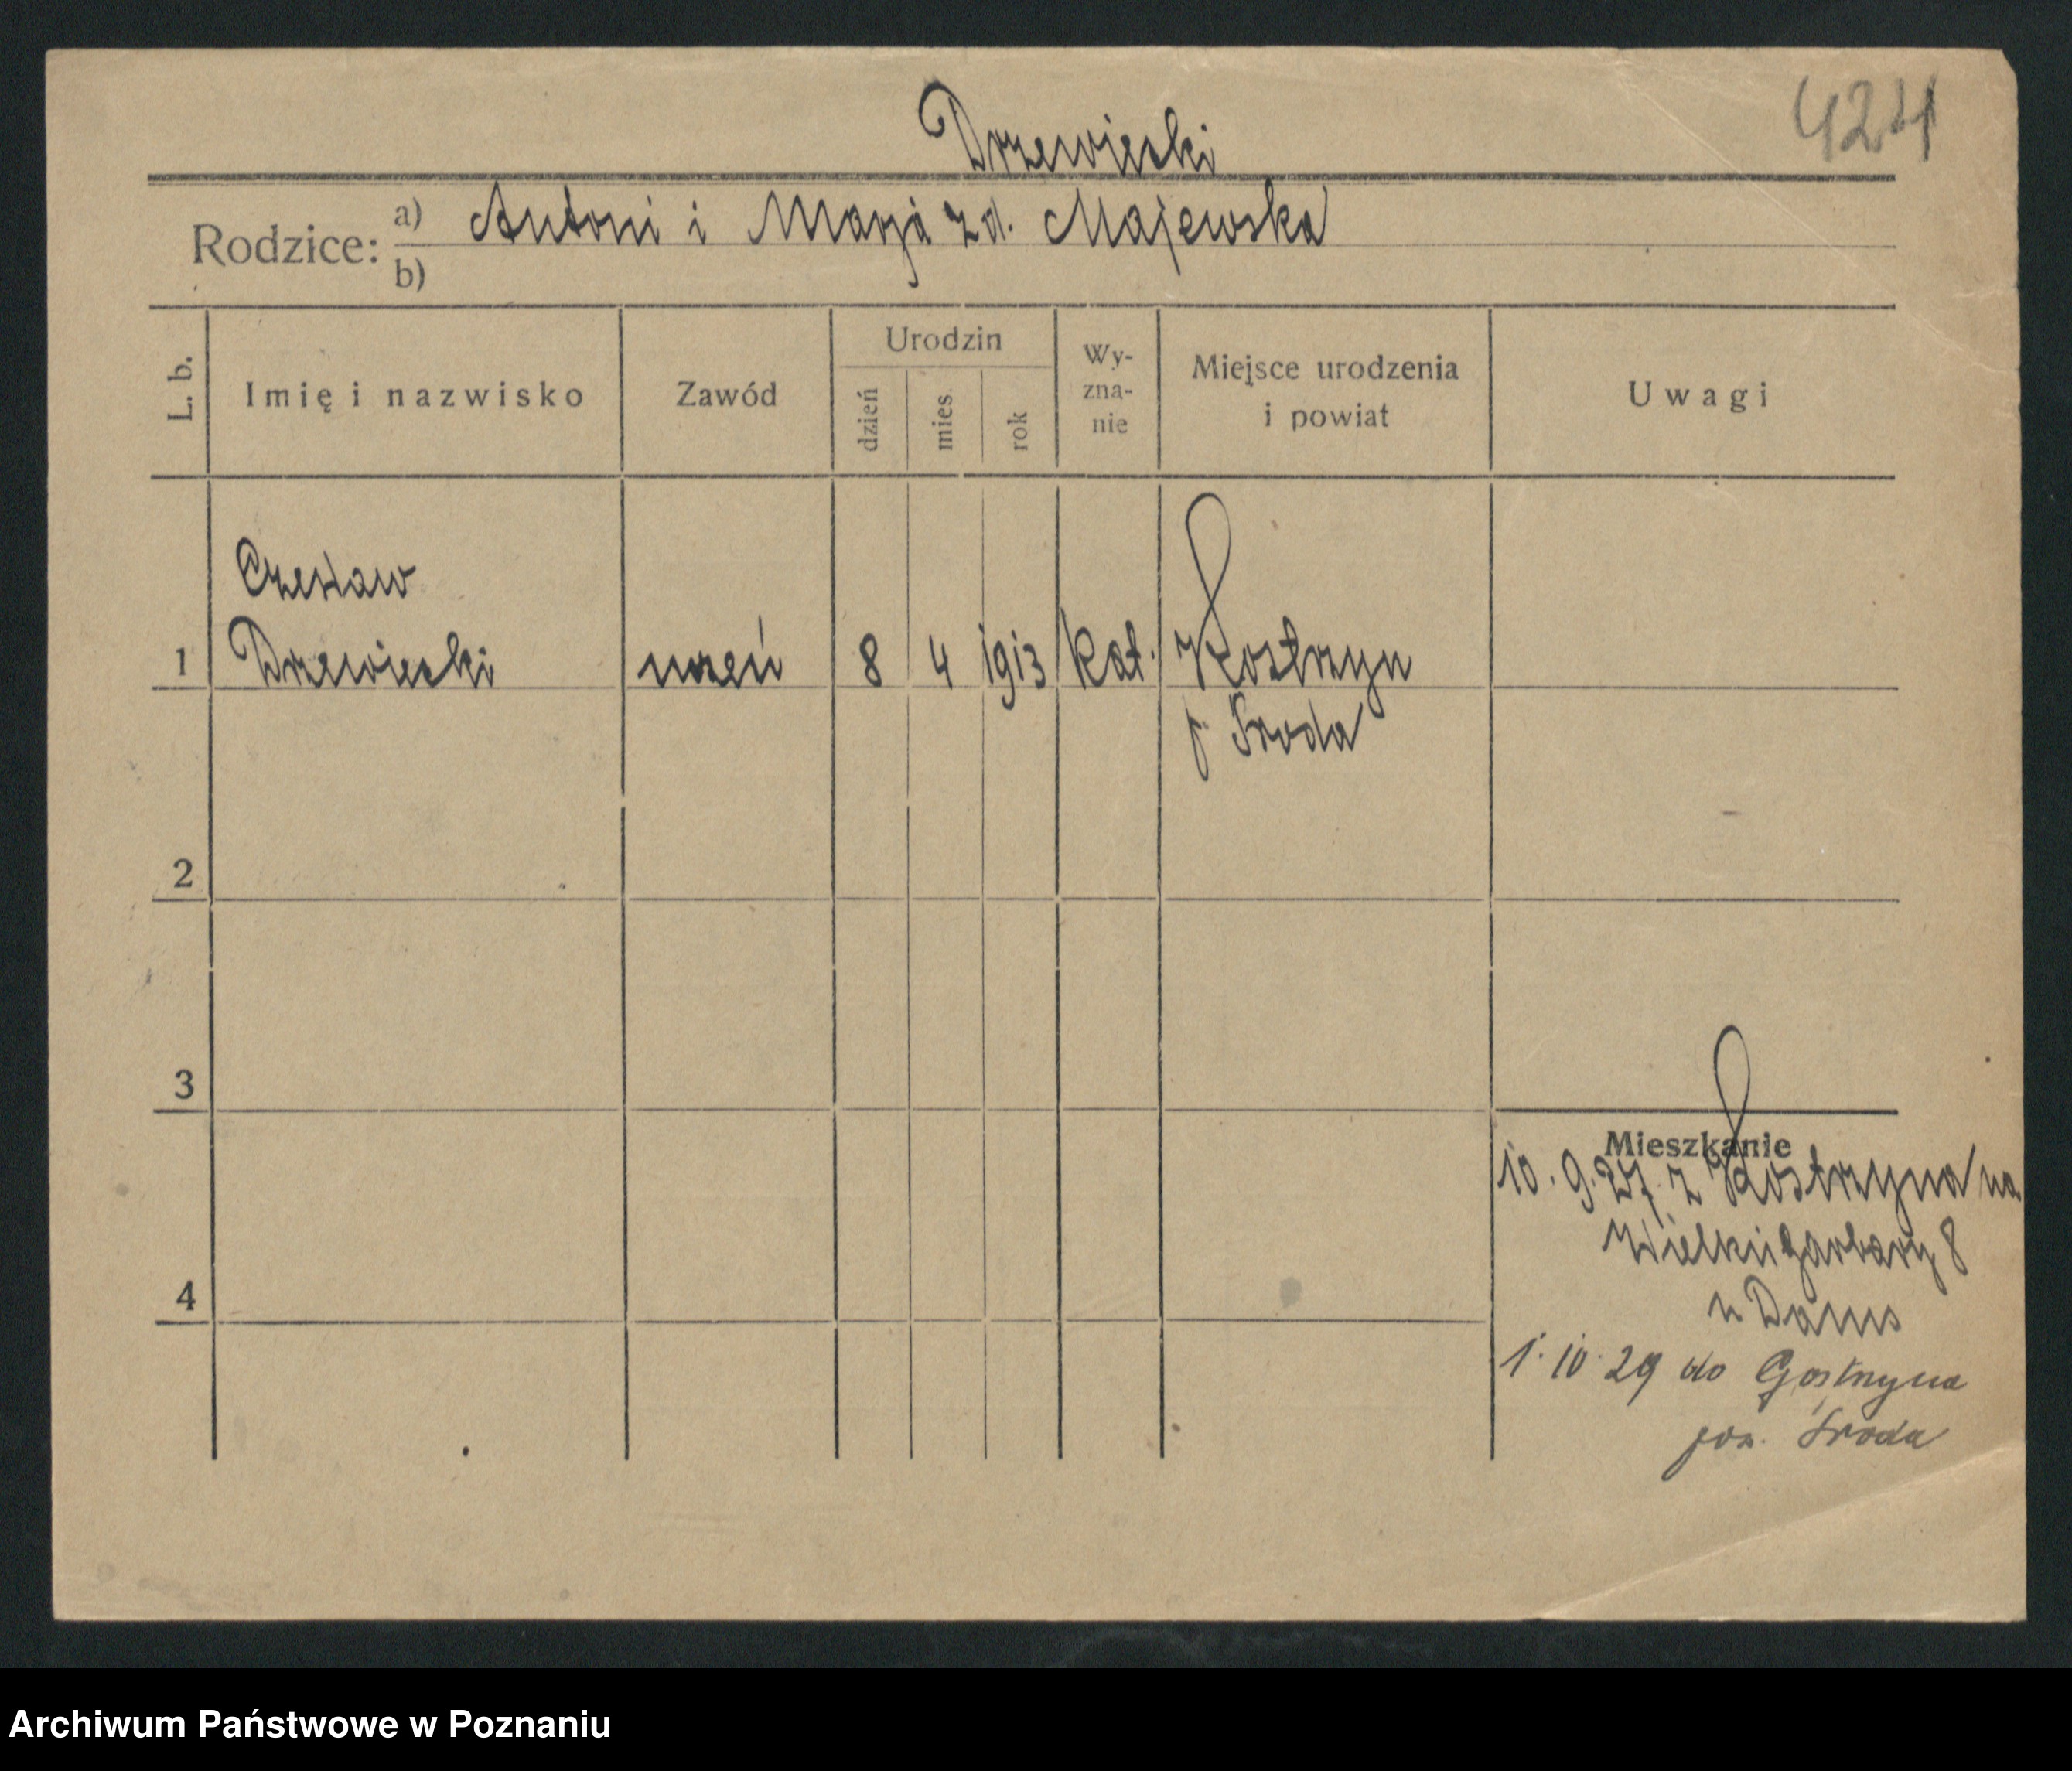 Drzewiecki
424
Rodzice: a) Antoni i Marja zd. Majewska
b)
L. b.
Imię i nazwisko
Zawód
Urodzin
dzień
mies
rok
Wy-
zna-
nie
Miejsce urodzenia
i powiat
Uwagi
Czesław
1 Drzewiecki uczeń 8 4 1913 kat. Kostrzyn
p. Środa
2
3
Mieszkanie
10. 9. 27. z Kostrzyna na
Wielkie garbary 8
u
4
1. 10. 29 do Gostrzyna
pow. Środa
Archiwum Państwowe w Poznaniu